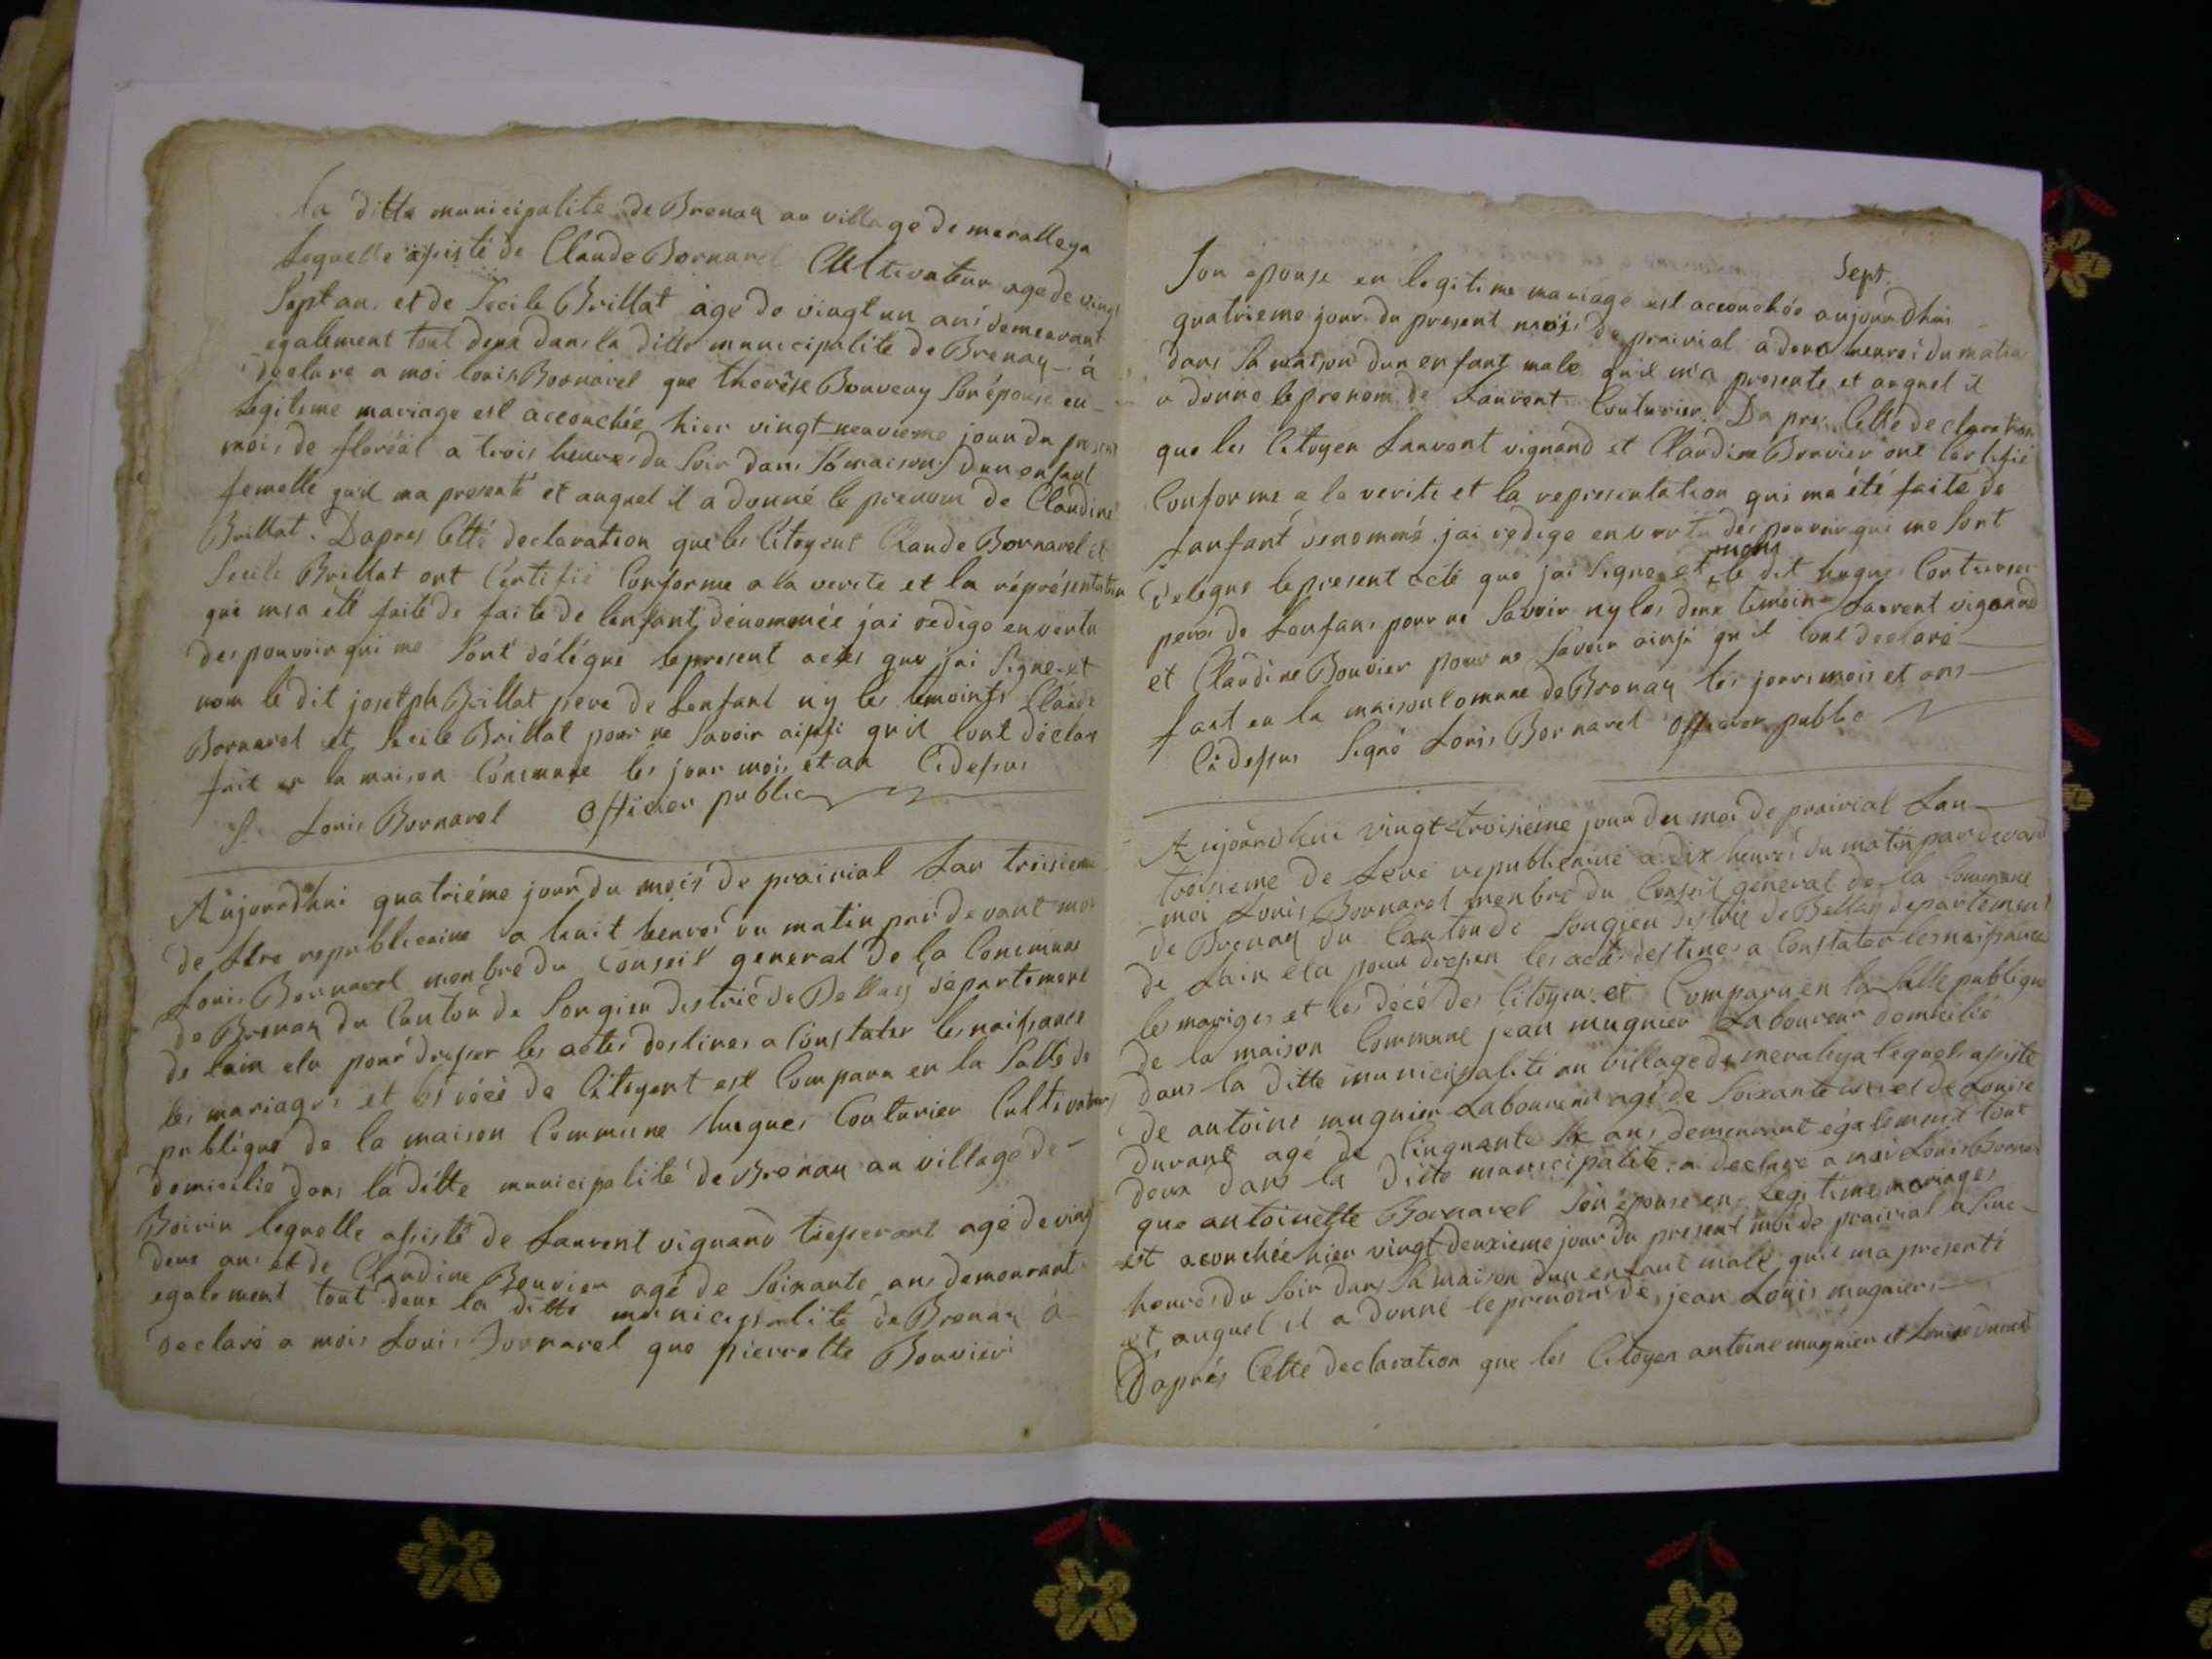 la ditte municipalite de Brenay au village de meralleya
lequelle asisté de Claude Bornarel Cultivateur age de vingt
sept an. et de Secile Brillat age de viagt un ans demeurant
egalement tout deux dans la ditte municipalite de Brenay - à
declare a moi louis Bornarel que therése Bouveny son épouse en -
legitime mariage est accouchée hier vingt neuvieme jour du present
mois de floréal a trois heures du soir dans sa maison dun enfant
femelle quil ma presenté et auquel il a donné le prenom de Claudine
Brillat. Dapres Cette declaration que les Citoyens Claude Bornarel et
Secile Brillat ont Certifié Conforme a la verite et la réprésentation
qui ma été faite de faite de lenfant dénommée jai redige en vertu
des pouvoir qui me sont délégué le present actes que jai signe et
non le dit joseph Brillat pere de lenfant ny les temoints Claude
Bornarel et Secile Brillat pour ne savoir ainsi quil lont déclar
fait en la maison Commune les jour mois et an Cidessus
Louis Bornarel Officier public
Aujourdhui quatriéme jour du mois de prairial Lan troisieme
de Lere republicaine a huit heures du matin par devant moi
Louis Bornarel menbre du Conseil general de la Commune
de Brenay du Canton de Songieu districte de Bellay departement
de lain elu pour dresser les actes destines a Constater les naissance
les mariages et les décé de Citoyent est Comparu en la Salle de
publique de la maison Commune hugues Couturier Cultivateur
domicilié dans la ditte municipalité de Brenay au village de -
Boirin lequelle asisté de Laurent vignand tisserant agé de vingt
deux ans et de Claudine Bouvier agé de Soixante ans demeurant
egalement tout deux la ditte municipalité de Brenay à -
declaré a mois Louis Bornarel que pierrette Bouvier
Sept.
Son epouse en legitime mariage est accouchée aujourdhui -
quatrieme jour du present mois de prairial a deux heures du matin
dans sa maison dun enfant male quil ma presente et auquel il
a donne le prenom de Laurent Couturier. Da pres Cette declaration
que les Citoyen Laurent vignand et Claudine Bouvier ont Certifié
Conforme a la verite et la representation qui ma été faite de
lanfant denommé jai redige en vertu des pouvoir qui me sont
delegue le present acte que jai signe et non le dit hugues Couturier
pere de Lenfans pour ne savoir ny les deux temoins Laurent vignand
et Claudine Bouvier pour ne savoir ainsi quil lont declaré
fait en la maison Comune de Brenay les jours mois et ans
Cidessus Signé Louis Bornarel Officier public
Aujourdhui vingt-troisiéme jour du moi de prairial Lan -
troisieme de Lere republicaine a dix heures du matin par devant
moi Louis Bornarel menbre du Conseil general de la Commune
de Brenay du Canton de Songieu districte de Bellay departement
de Lain elu pour dresser les actes destines a Constater les naissance
les mariges et les décé des Citoyens et Comparu en la Salle publique
de la maison Commune jean mugnier Laboureur domicilié
dans la ditte municipalité au village de meraleya lequel asisté
de antoine mugnier Laboureur agé de Soixante ans et de Louise
durant agé de Cinquante six ans demeurant également tout
deux dans la dite municipalite. a declare a moi Louis Bornar
que antoinette Bornarel son épouse en legitime mariages
est acouchée hier vingt deuxieme jour du present moi de prairial a sinc -
heures du soir dans sa maison dun enfant male quil ma presenté
et auquel il a donné le prenom de jean Louis mugniers
D'aprés Cette declaration que les Citoyen antoine mugnier et Louise durant